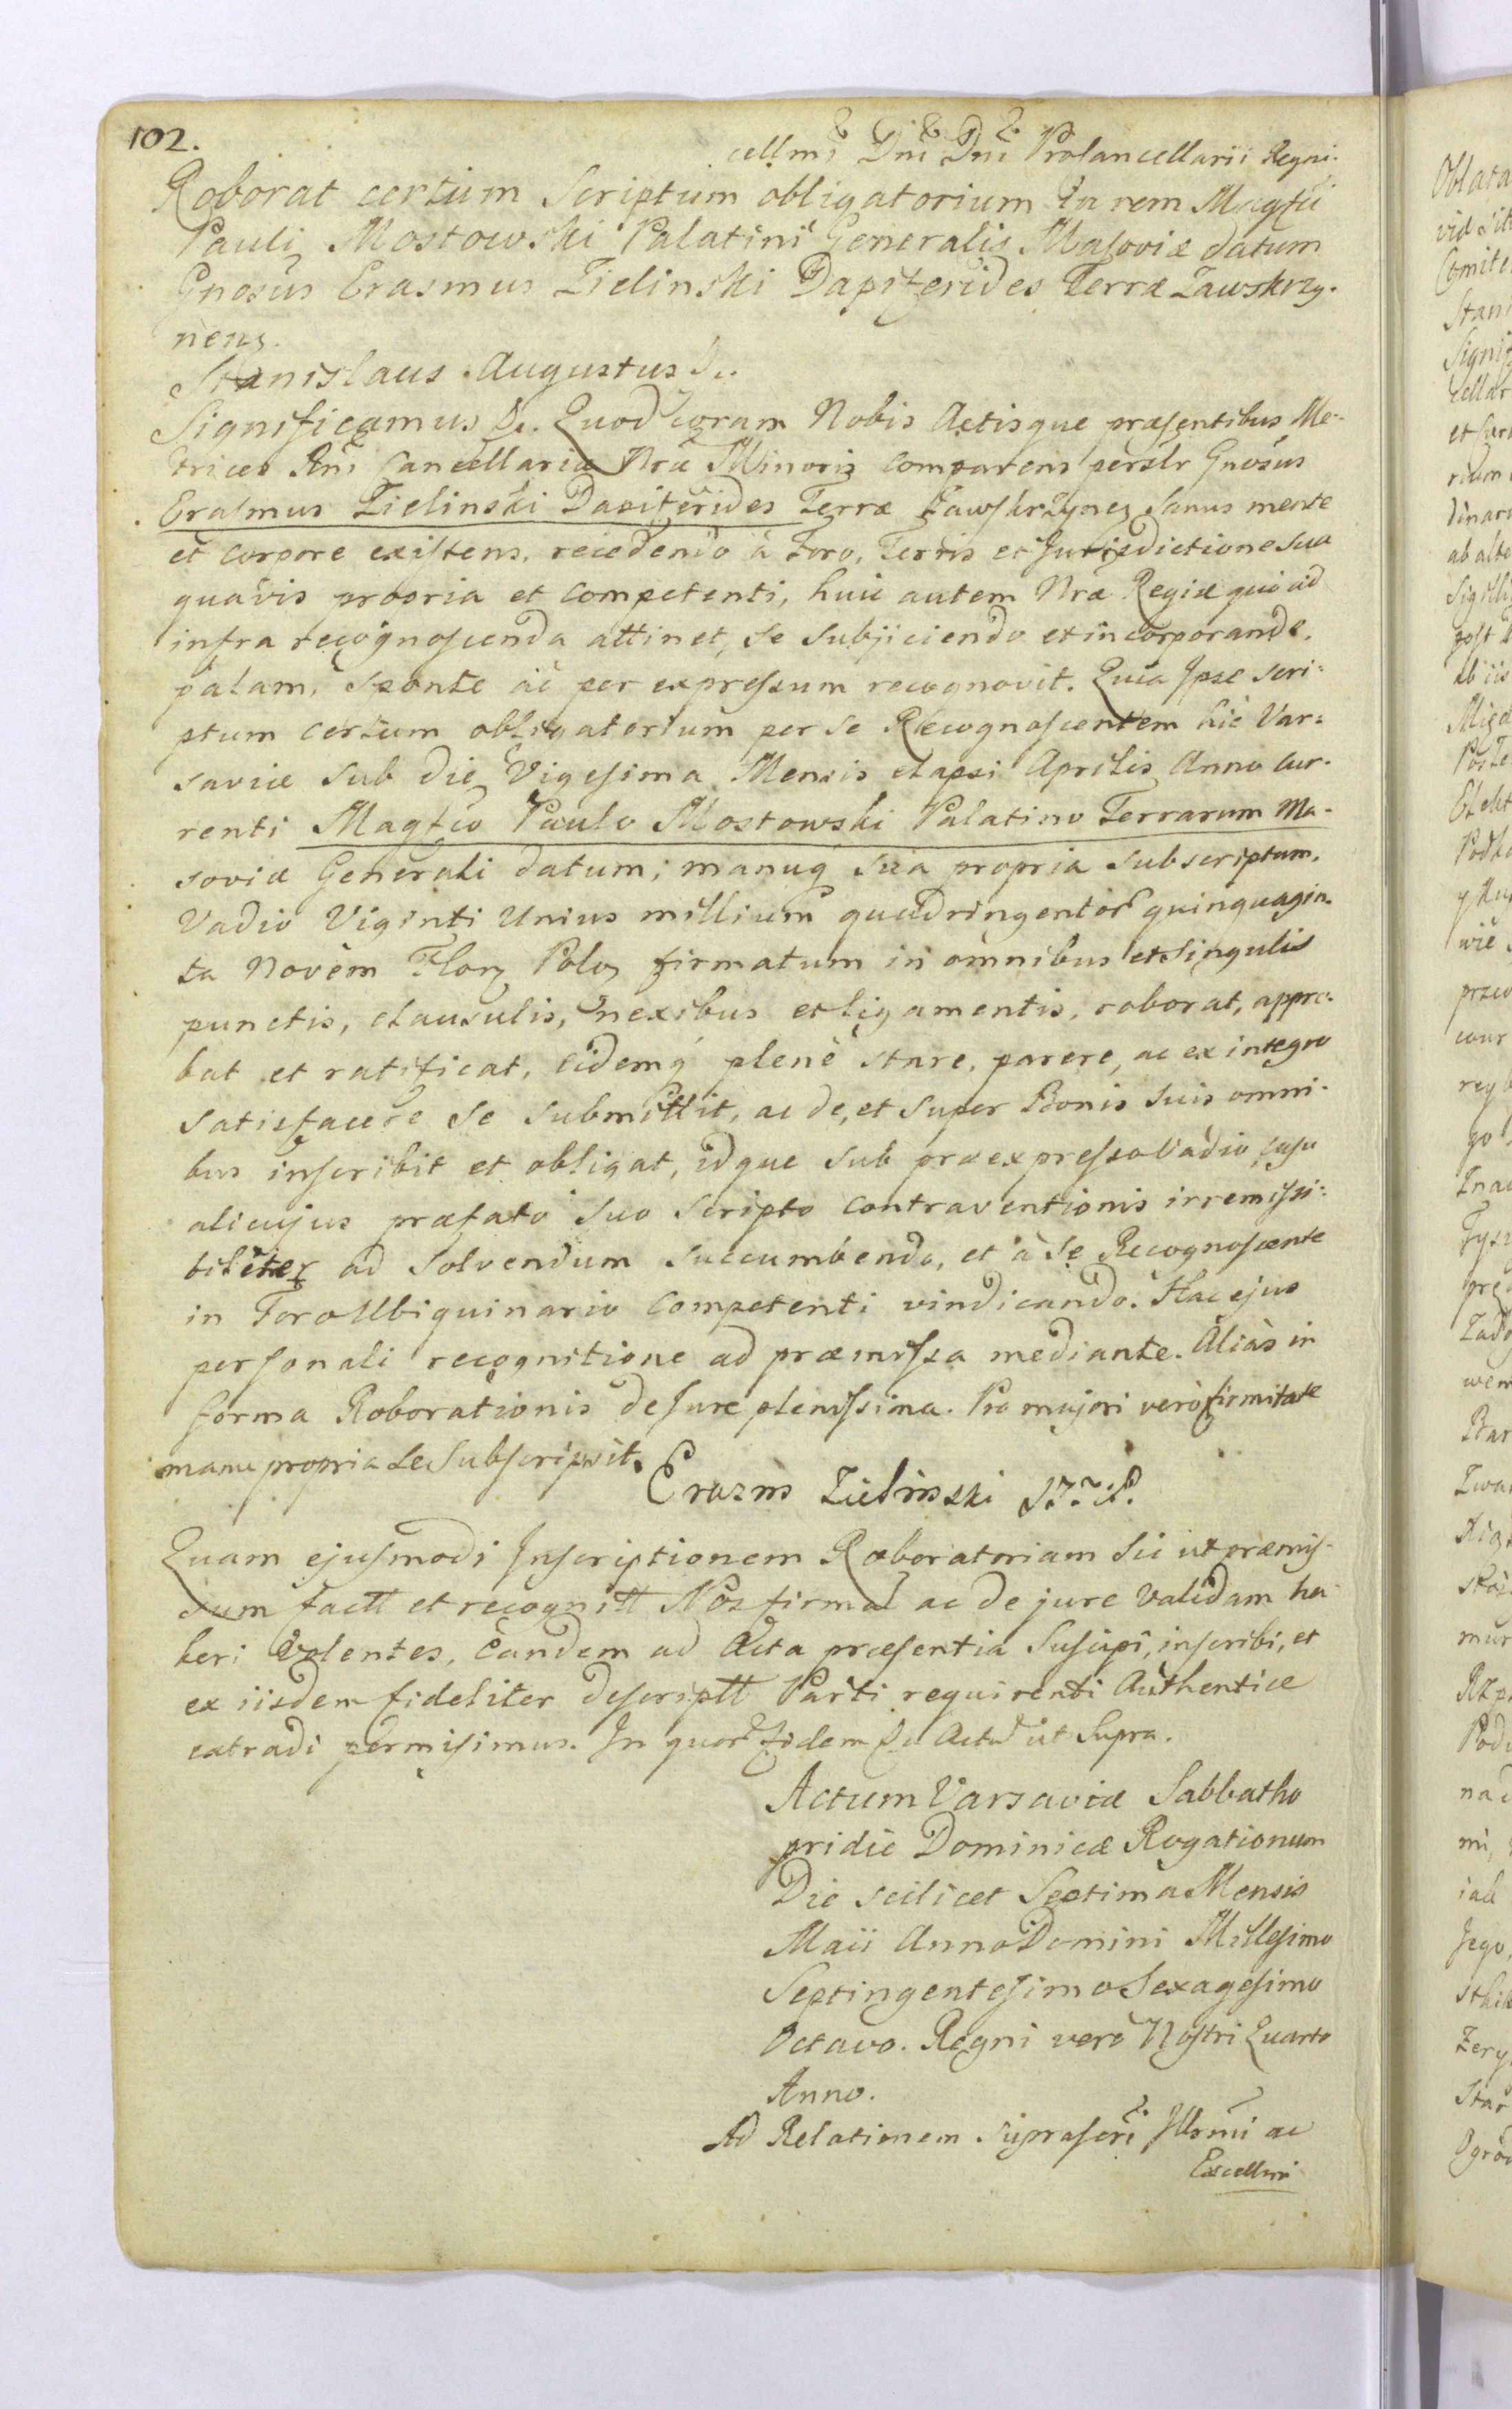 102.
cellmi Dni Dni Prolancellarii Regni.
Roborat certum Scriptum obligatorium in rem Magfci
Pauli Mostowski Palatini Generalis Masoviæ datum
Gnosus Erasmus Zielinski Dapiferides Terræ Zawskrzy-
nens.
Stanislaus Augustus &c.
Significamus &c. Quod coram Nobis Actisque præsentibus Me-
trices Rni Cancellariæ Nræ Minoris comparens persolr Gnosus
Erasmus Zielinski Dapiferides Terræ Zawskrzynens Sanus mente
et corpore existens, recedendo à Foro, Terris et Jurisdictione sua
quavis propria et competenti, huic autem Nræ Regiæ quo ad
infra recognoscenda attinet, se subjiciendo et incorporando.
palam, sponte ac per expressum recognovit. Quia Ipse scri-
ptum certum obligatorium per se Recognoscentem hic Var-
saviæ sub die Vigesima Mensis elapsi Aprilis Anno cur-
renti Magfco Paulo Mostowski Palatino Terrarum Ma-
soviæ Generali datum; manuq sua propria subscriptum.
Vadio Viginti Unius millium quadringentor quinquagin-
ta Novem Flor Pol firmatum in omnibus et singulis
punctis, clausulis, nexibus et ligamentis, roborat, appro-
bat et ratificat, eidemq plenè stare, parere, ac ex integro
satisfacere se submittit, ac de, et super Bonis suis omni-
bus inscribit et obligat, idque sub præexpresso Vadio, casu
alicujus præfato suo scripto contraventionis irremissi-
biliter ad solvendum succumbendo, et à se Recognoscente
in Foro Ubiquinario competenti vindicando. Hac ejus
personali recognitione ad præmissa mediante. Aliàs in
forma Roborationis de Jure plenissima. Pro majori verò firmitate
manu propria se subscripsit.
Erazm Zielinski
Quam ejusmodi Inscriptionem Roboratoriam sic ut præmis-
sum factt et recognitt Nos firmal ac de jure validam ha-
beri volentes, eandem ad Acta præsentia suscipi, inscribi, et
ex iisdem fideliter descriptt Parti requirenti Authentice
extradi permisimus. In quor fidem &c Actu ut Supra.
Actum Varsaviæ Sabbatho
pridie Dominicæ Rogationum
Die scilicet Septima Mensis
Maii Anno Domini Millesimo
Septingentesimo Sexagesimo
Octavo. Regni verò Nostri Quarto
Anno.
Ad Relationem suprascri Illsmi ac
Excellmi